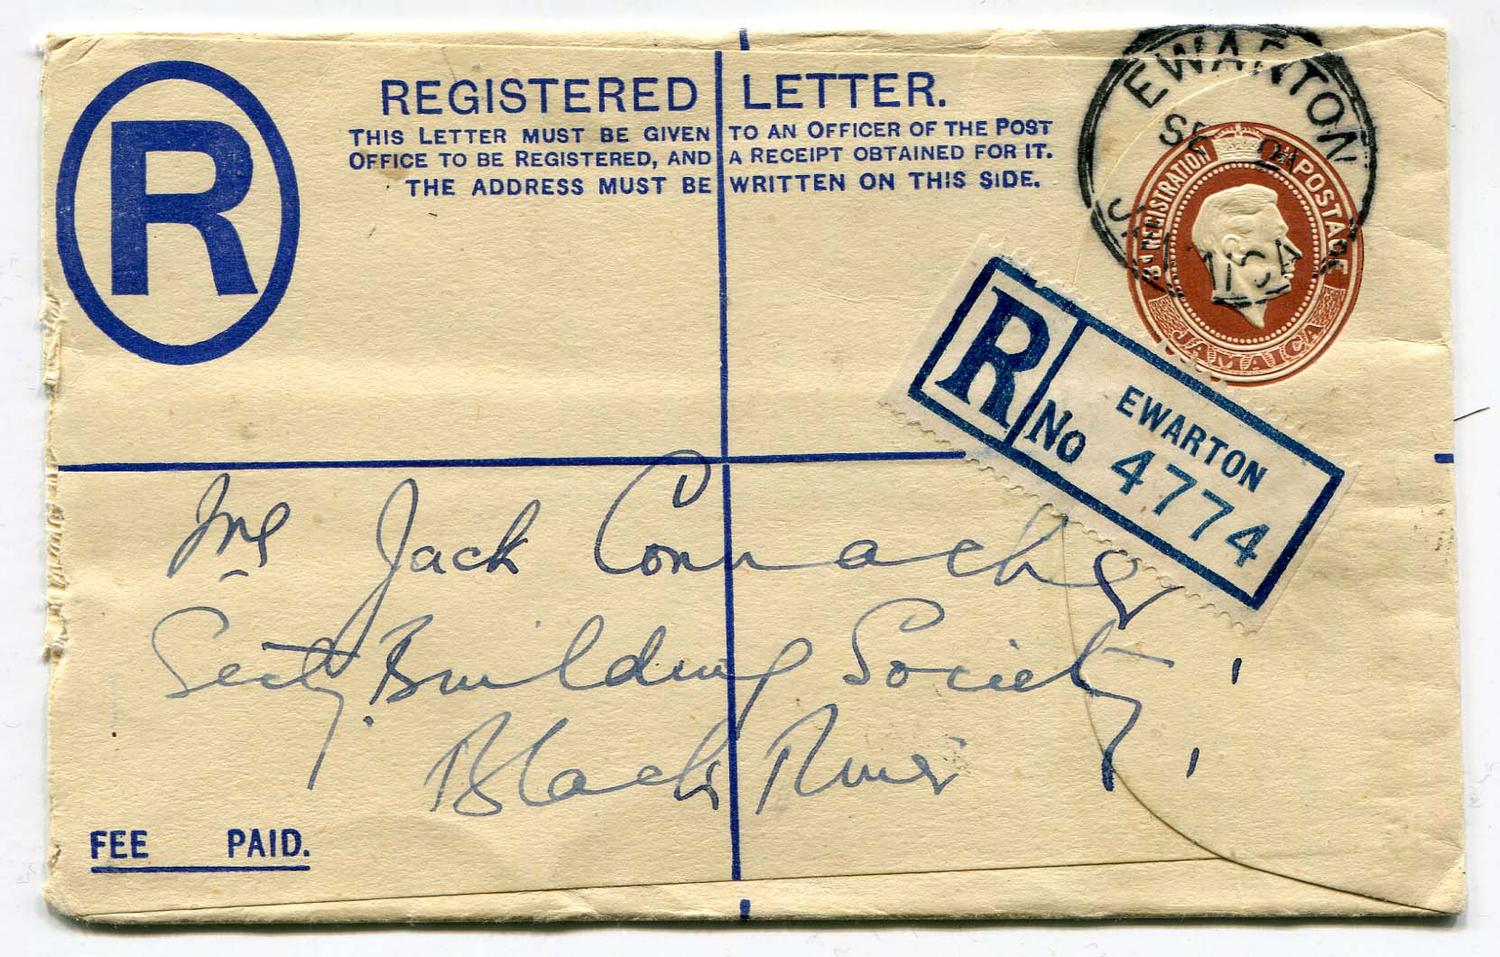 R
REGISTERED LETTER.
THIS LETTER MUST BE GIVEN TO AN OFFICER OF THE POST
OFFICE TO BE REGISTERED, AND A RECEIPT OBTAINED FOR IT.
THE ADDRESS MUST BE WRITTEN ON THIS SIDE.
EWARTON
REGISTRATION POSTAGE
JAMAICA
R No EWARTON
4774
Jack
Building Society
Black River
FEE PAID.